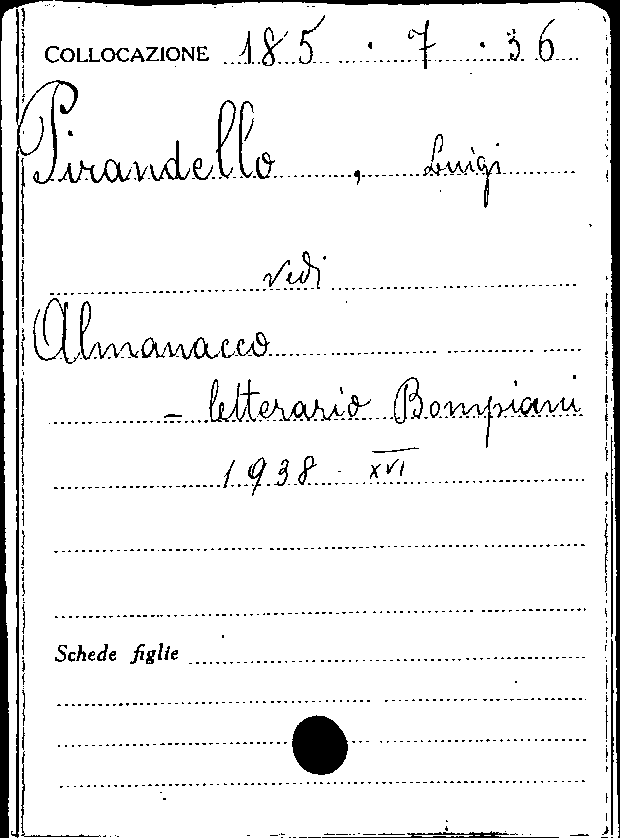 COLLOCAZIONE 185 . 7 . 36
Pirandello , Luigi
vedi
Almanacco
- letterario Bompiani
1938 - XVI
Schede figlie